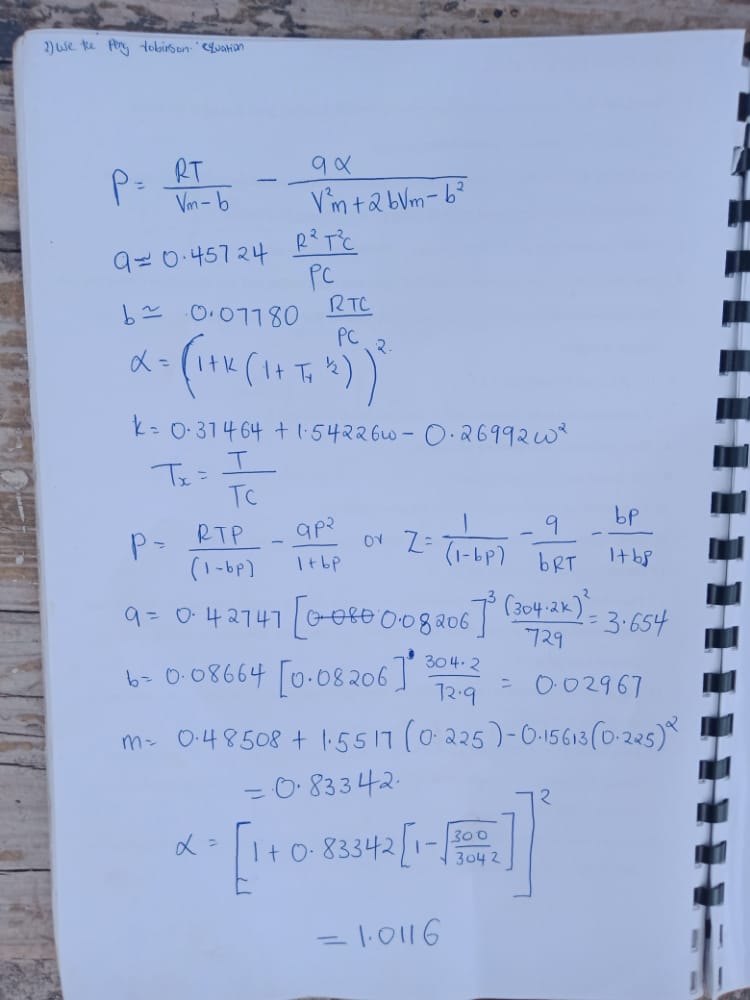 2) Use the Peng tobinson equation
P = RT / Vm - b - aα / V²m + 2bVm - b²
a ≃ 0.45724 R² T²C / PC
b ≃ 0.07780 RTC / PC
α = (1 + k (1 + Tr ½))².
k = 0.37464 + 1.54226ω - 0.26992ω²
Tx = T / TC
P = RTP / (1-bp) - aP² / 1+bp or Z = 1 / (1-bp) - a / bRT - bp / 1+bp
a = 0.42747 [0.08206]³ (304.2k)² / 729 = 3.654
b = 0.08664 [0.08206] 304.2 / 72.9 = 0.02967
m = 0.48508 + 1.5517 (0.225) - 0.15613 (0.225)²
= 0.83342.
α = [1 + 0.83342 [1 - √300/3042]]²
= 1.0116